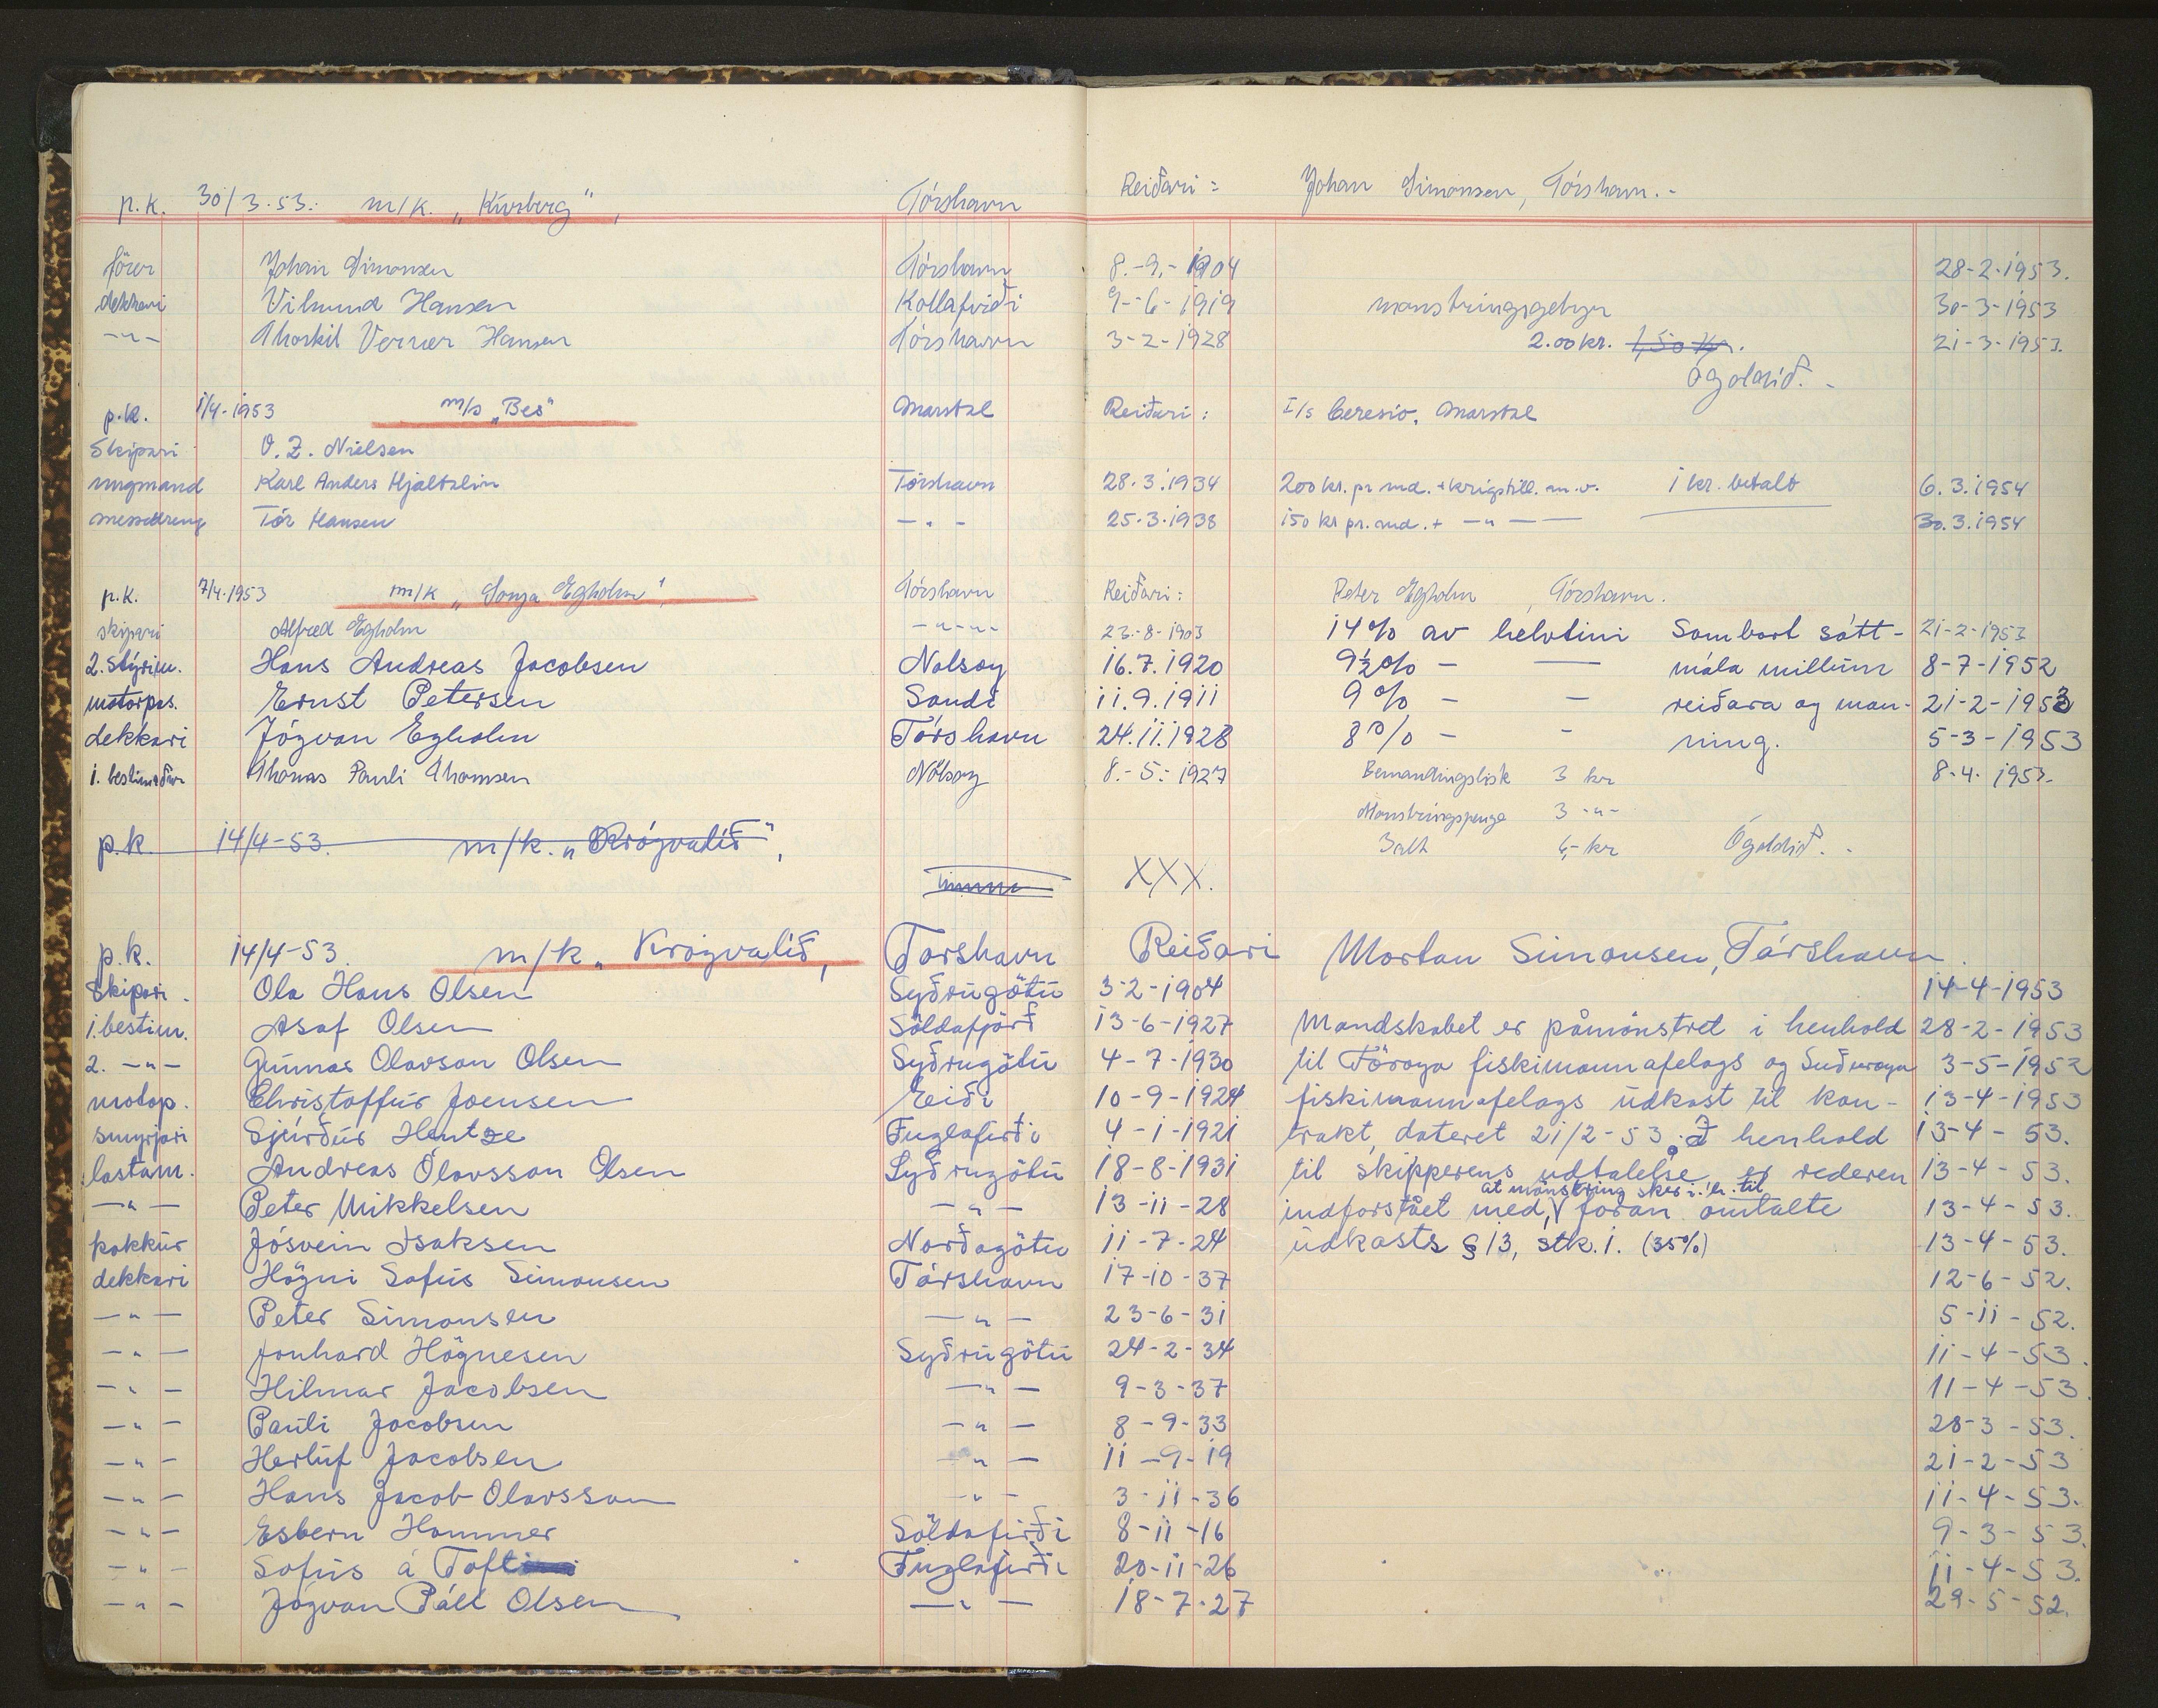 p.k. 30/3.53. m/k. „Kirsberg", Tórshavn Reiðari: Johan Simonsen, Tórshavn.-
förer Johan Simonsen Tórshavn 8.-9.-1904 28-2-1953.
dekkari Vilmund Hansen Kollafirði 9-6-1919 mønstringsgebyr 30-3-1953
-"- Thorkil Verner Hansen Tórshavn 3-2-1928 2.00 kr. 1,50 Kr. 21-3-1953.
Ógoldið.-
p.k. 1/4-1953 m/s „Bes" Marstal Reiðari: I/s Ceresio, Marstal
Skipari O. Z. Nielsen
ungmand Karl Anders Hjaltalin Tórshavn 28.3.1934 200 kr. pr. md. + krigstill. m.v. 1 kr. betalt 6.3.1954
messedreng Tór Hansen -"- 25.3.1938 150 kr pr. md. + -"- 30.3.1954
p.k. 7/4.1953 m/k „Sonja Egholm", Tórshavn Reiðari: Peter Egholm, Tórshavn.
skipari Alfred Egholm -"-"- 23-8-1903 14% av helvtini Sambart sátt- 21-2-1953
2. stýrim. Hans Andreas Jacobsen Nolsoy 16.7.1920 9½% - — mála millum 8-7-1952
motorpas. Ernst Petersen Sandi 11.9.1911 9% - - reiðara og man- 21-2-1953
dekkari Jógvan Egholm Tórshavn 24.11.1928 8% - - ning. 5-3-1953
1. bestimaður Thomas Pauli Thomsen Nólsoy 8.-5.-1927 Bemandingslisk 3 kr 8.4.1953.
Mønstringspenge 3 -"-
p.k. 14/4-53. m/k. „Krógvalið", Ialt 6,- kr Ógoldið.-
XXX.
p.k. 14/4-53. m/k „Krógvalið, Torshavn Reiðari Mortan Simonsen, Tórshavn.
Skipari. Ola Hans Olsen Syðrugötu 3-2-1904 14-4-1953
1. bestim. Asaf Olsen Söldafjørð 13-6-1927 Mandskabet er påmönstret i henhold 28-2-1953
2. -"- Gunnar Olavson Olsen Syðrugötu 4-7-1930 til Föroya fiskimannafelags og Suðuroya 3-5-1952
motop. Christoffur Joensen Eiði 10-9-1924 fiskimannafelags udkast til kon- 13-4-1953
smyrjari Sjúrður Hentze Fuglafirði 4-1-1921 trakt, dateret 21/2-53. I henhold 13-4-53.
lastam. Andreas Ólavsson Olsen Syðrugötu 18-8-1931 til skipperens udtalelse er rederen 13-4-53.
-"- Peter Mikkelsen -"- 13-11-28 indforstået med, at mönstring sker i.h.til foran omtalte 13-4-53.
kokkur Jósvein Isaksen Norðagötu 11-7-24 udkasts §13, stk.1. (35%) 13-4-53.
dekkari Högni Sofus Simonsen Tórshavn 17-10-37 12-6-52.
-"- Peter Simonsen -"- 23-6-31 5-11-52.
-"- Jonhard Högnesen Syðrugötu 24-2-34 11-4-53.
-"- Hilmar Jacobsen -"- 9-3-37 11-4-53.
-"- Pauli Jacobsen -"- 8-9-33 28-3-53.
-"- Herluf Jacobsen -"- 11-9-19 21-2-53
-"- Hans Jacob Olavsson -"- 3-11-36 11-4-53.
-"- Esbern Hammer Söldafirði 8-11-16 9-3-53.
-"- Sofus á Toft Fuglafirði 20-11-26 11-4-53.
-"- Jógvan Páll Olsen -"- 18-7-27 29-5-52.